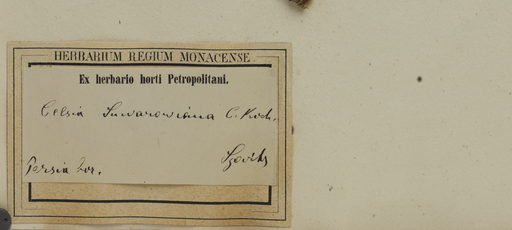 HERBARIUM REGIUM MONACENSE
Ex herbario horti Petropolitani.
Celsia Suwarowiana C. Koch.
Szovits
Persia bor.